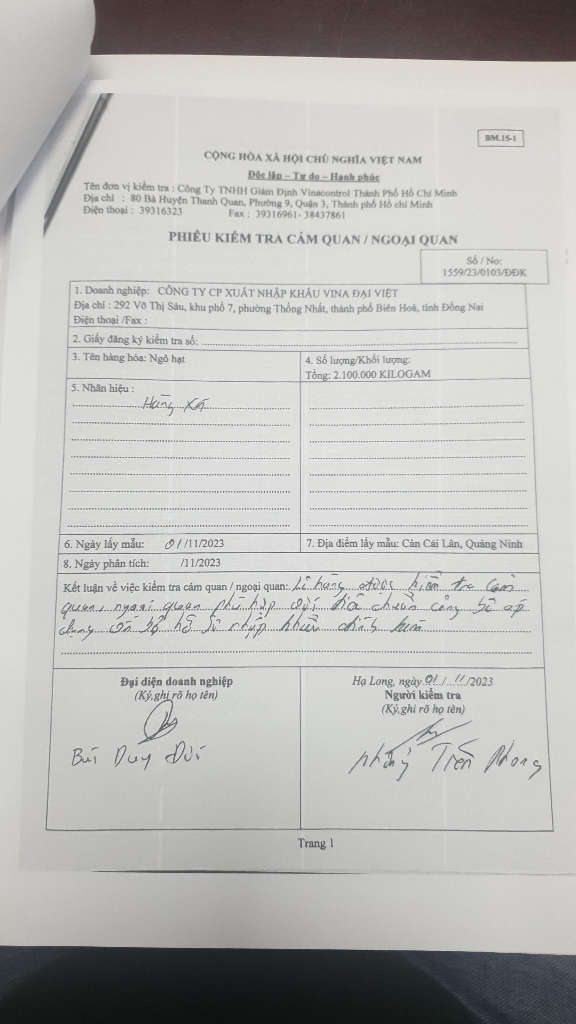 BM.15-1
CỘNG HÒA XÃ HỘI CHỦ NGHĨA VIỆT NAM
Độc lập – Tự do – Hạnh phúc
Tên đơn vị kiểm tra : Công Ty TNHH Giám Định Vinacontrol Thành Phố Hồ Chí Minh
Địa chỉ : 80 Bà Huyện Thanh Quan, Phường 9, Quận 3, Thành phố Hồ chí Minh
Điện thoại : 39316323 Fax : 39316961- 38437861
PHIẾU KIỂM TRA CẢM QUAN / NGOẠI QUAN
Số / No:
1559/23/0103/ĐĐK
1. Doanh nghiệp: CÔNG TY CP XUẤT NHẬP KHẨU VINA ĐẠI VIỆT
Địa chỉ : 292 Võ Thị Sáu, khu phố 7, phường Thống Nhất, thành phố Biên Hoà, tỉnh Đồng Nai
Điện thoại /Fax :
2. Giấy đăng ký kiểm tra số:
3. Tên hàng hóa: Ngô hạt
4. Số lượng/Khối lượng:
Tổng: 2.100.000 KILOGAM
5. Nhãn hiệu :
Hàng xá
6. Ngày lấy mẫu: 01/11/2023
7. Địa điểm lấy mẫu: Cản Cái Lân, Quảng Ninh
8. Ngày phân tích: /11/2023
Kết luận về việc kiểm tra cảm quan / ngoại quan: Lô hàng được kiểm tra cảm
quan, ngoại quan phù hợp với tiêu chuẩn công bố áp
dụng hồ sơ nhập khẩu
Đại diện doanh nghiệp
(Ký,ghi rõ họ tên)
Bùi Duy
Hạ Long, ngày 01/11/2023
Người kiểm tra
(Ký,ghi rõ họ tên)
Phong
Trang 1